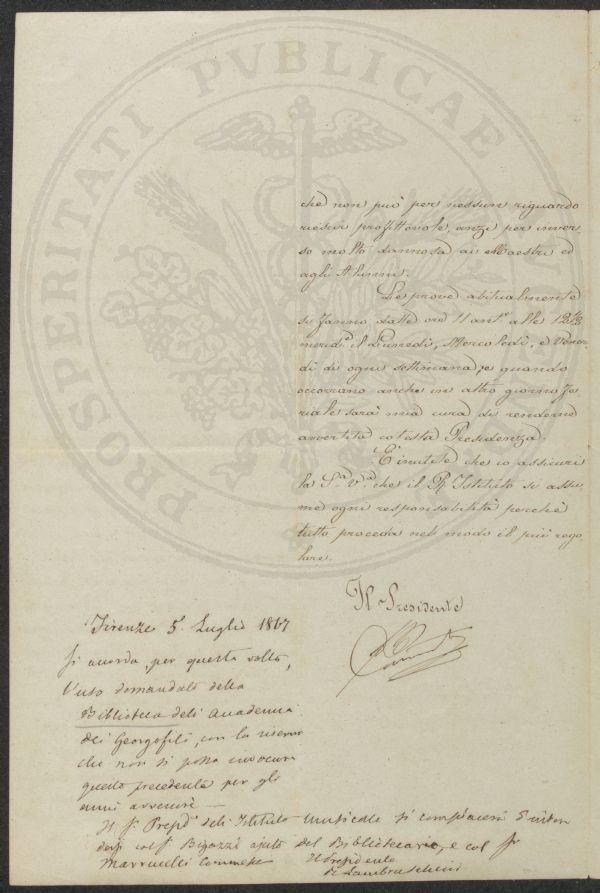 PROSPERITATI PVBLICAE
che non può per nessun riguardo
riescir profittevole, anzi per inver
so molto dannosa ai Maestri ed
agli Alunni.
Le prove abitualmente
si fanno dalle ore 11 antᵉ alle 12½
merid.ᵉ il Lunedì, Mercoledì, e Vener-
dì di ogni settimana, e quando
occorrano anche in altro giorno fe
riale sarà mia cura di renderne
avvertita cotesta Presidenza.
È inutile che io assicuri
la S.ᵃ V.ᵃ che il R. Istituto si assu
me ogni responsabilità perchè
tutto proceda nel modo il più rego
lare.
Il Presidente
Firenze 5. Luglio 1867
Si accorda, per questa volta,
l'uso domandato della
Biblioteca dell'Accademia
dei Georgofili, con la riserva
che non si possa invocare
questo precedente per gli
anni avvenire —
Il S.ʳ Presid.ᵉ dell'Istituto Musicale si compiacerà d'inten
dersi col S.ʳ Bigazzi ajuto del Bibliotecario, e col Sʳ
Marrucelli Commesso
Il Presidente
R. Lambruschini